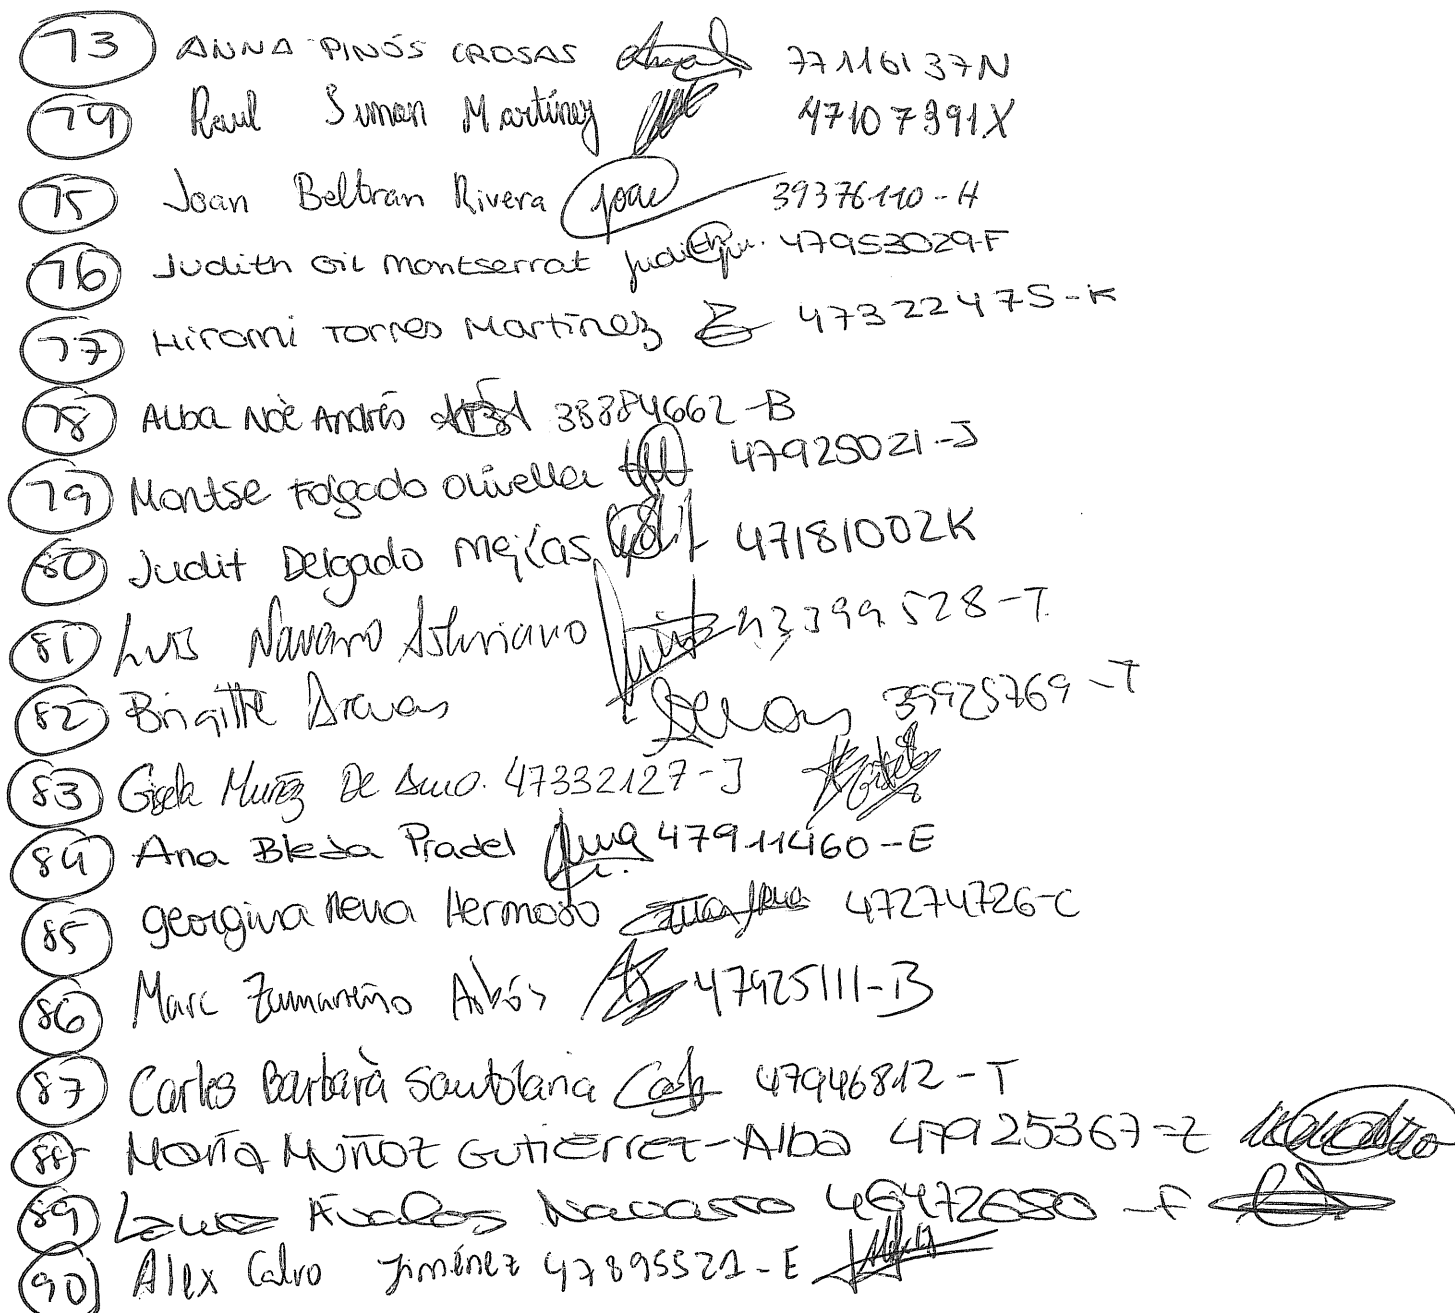 73 ANNA PINÓS CROSAS 77116137N
74 Raul Simon Martínez 47107391X
75 Joan Beltran Rivera Joan 39376110-H
76 Judith Gil Montserrat Judith 47953029-F
77 Hiromi Torres Martínez 47322475-K
78 Alba Noè Andrés 38884662-B
79 Montse Folgado Olivella 47925021-J
80 Judit Delgado Mejías 47181002K
81 Luis Navarro 43399528-T
82 Brigitte 39925769-T
83 Gisela Muñoz De 47332127-J
84 Ana Bleda Pradel 47911460-E
85 Georgina Mena Hermoso 47274726-C
86 Marc 47925111-B
87 Carles Barbarà 47946812-T
88 María Muñoz Gutiérrez-Alba 47925367-Z
89 Ávalos Navarro 46472680-F
90 Alex Calvo Jiménez 47895521-E